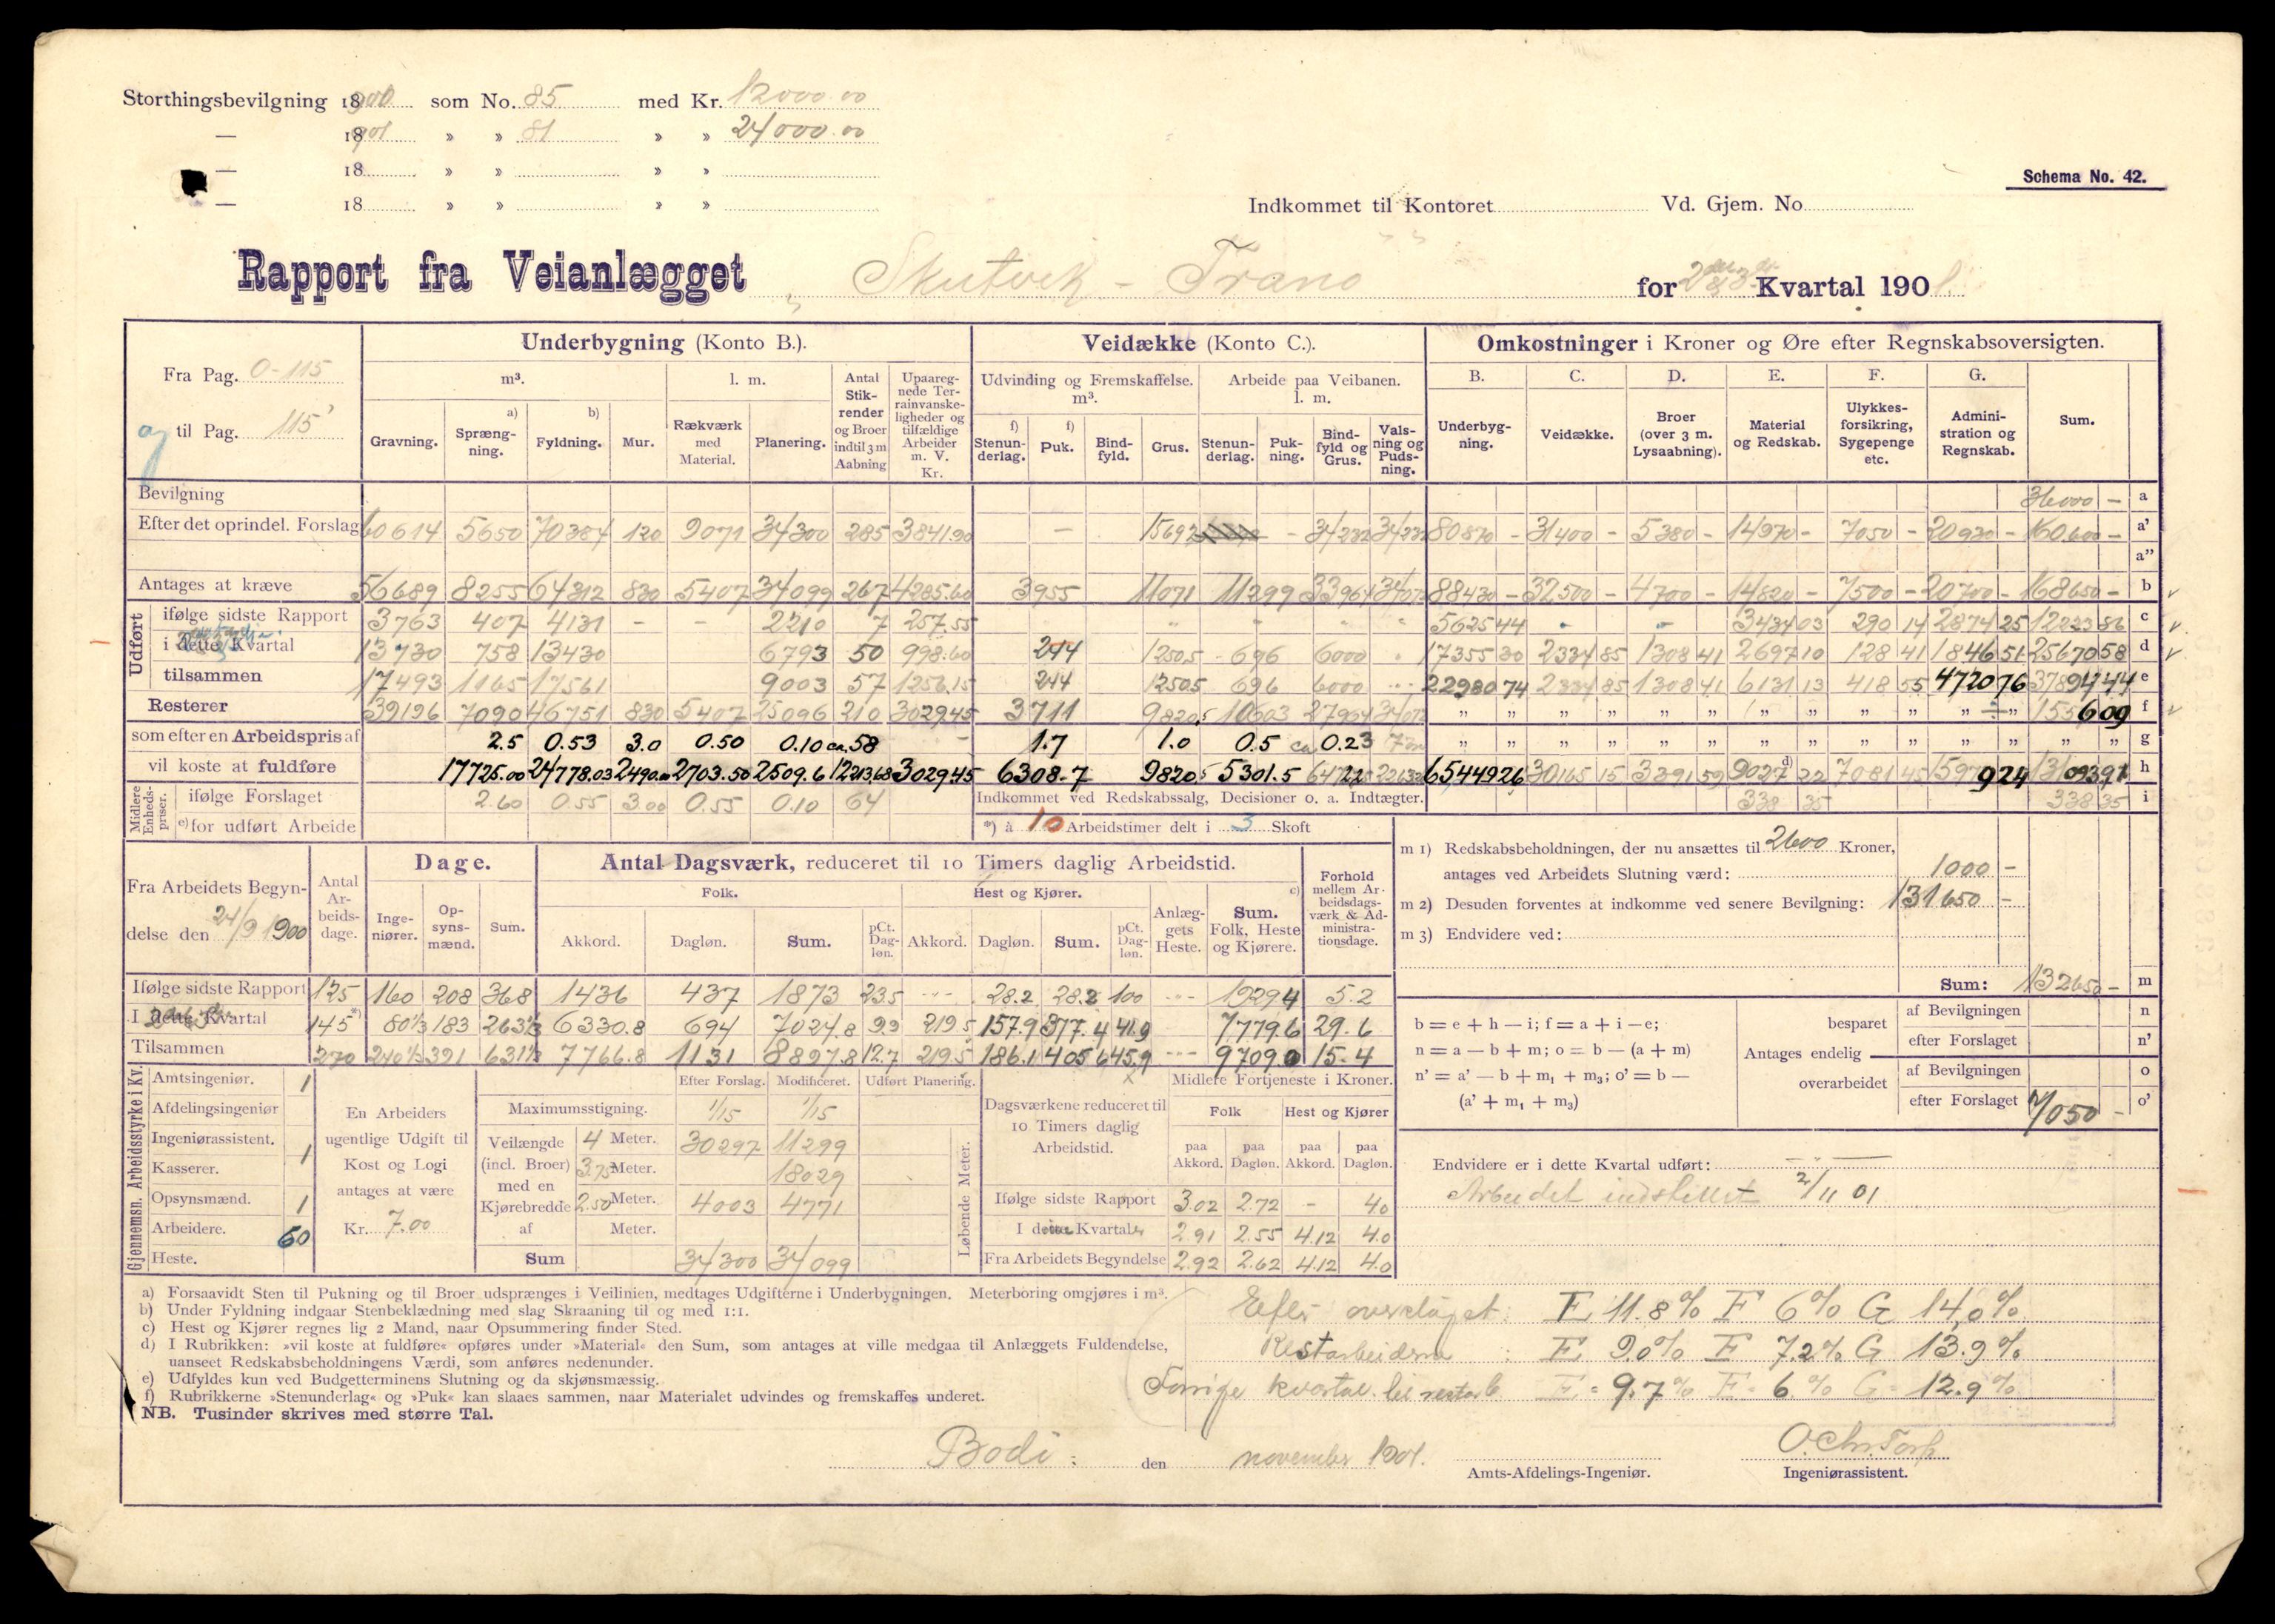 Storthingsbevilgning 1900 som No. 85 med Kr. 12000.00
— 1901 » » 81 » » 24000.00
— 18 » » » »
— 18 » » » »
Schema No. 42.
Indkommet til Kontoret Vd. Gjem. No
Rapport fra Veianlægget Skutvik - Tranö for 2det & 3 Kvartal 1901.
Fra Pag. 0-115
og til Pag. 115'
Underbygning (Konto B.). Veidække (Konto C.). Omkostninger i Kroner og Øre efter Regnskabsoversigten.
m³. l. m. Antal Stikrender og Broer indtil 3 m Aabning Upaaregnede Terrainvanskeligheder og tilfældige Arbeider m. V. Kr. Udvinding og Fremskaffelse. m³. Arbeide paa Veibanen. l. m. B. C. D. E. F. G.
Gravning. a) Sprængning. b) Fyldning. Mur. Rækværk med Material. Planering. f) Stenunderlag. f) Puk. Bindfyld. Grus. Stenunderlag. Pukning. Bindfyld og Grus. Valsning og Pudsning. Underbygning. Veidække. Broer (over 3 m. Lysaabning). Material og Redskab. Ulykkesforsikring, Sygepenge etc. Administration og Regnskab. Sum.
Bevilgning 36000 — a
Efter det oprindel. Forslag 60614 5650 70384 120 9071 34300 285 3841.90 — 15692 - 34232 34232 80870 - 31400 - 5380 - 14970 - 7050 - 20930 - 160.600 - a'
a"
Antages at kræve 56689 8255 64312 830 5407 34099 267 4285.60 3955 11071 11299 33964 34072 88430 - 32500 - 4700 - 14820 - 7500 - 20700 - 168650 - b
Udført
ifølge sidste Rapport 3763 407 4131 - - 2210 7 257.55 5625 44 - - 3434 03 290 14 2874 25 12223 86 c
i dette Kvartal 13730 758 13430 6793 50 998.60 244 1250.5 696 6000 17355 30 2334 85 1308 41 2697 10 128 41 1846 51 25670 58 d
tilsammen 17493 1165 17561 9003 57 1256.15 244 1250.5 696 6000 22980 74 2334 85 1308 41 6131 13 418 55 4720 76 37894 44 e
Resterer 39196 7090 46751 830 5407 25096 210 3029.45 3711 9820.5 10603 27964 34072 " " " " " " " " " " " " 155609 f
som efter en Arbeidspris af 2.5 0.53 3.0 0.50 0.10 ca. 58 - 1.7 1.0 0.5 ca 0.23 " " " " " " " " " " " " " " g
vil koste at fuldføre 17725.00 24778.03 2490.00 2703.50 2509.6 12213.68 3029.45 6308.7 9820.5 5301.5 65449 26 30165 15 3391 59 9027 d) 22 7081 45 h
Midlere Enhedspriser.
ifølge Forslaget 2.60 0.55 3.00 0.55 0.10 64 Indkommet ved Redskabssalg, Decisioner o. a. Indtægter. 338 35 338 35 i
e) for udført Arbeide *) à 10 Arbeidstimer delt i 3 Skoft
Fra Arbeidets Begyndelse den 24/9 1900
Antal Arbeidsdage. Dage. Antal Dagsværk, reduceret til 10 Timers daglig Arbeidstid. Forhold mellem Arbeidsdagsværk & Administrationsdage.
Ingeniører. Opsynsmænd. Sum. Folk. Hest og Kjører. Anlæggets Heste. c) Sum. Folk, Heste og Kjørere.
Akkord. Dagløn. Sum. pCt. Dagløn. Akkord. Dagløn. Sum. pCt. Dagløn.
Ifølge sidste Rapport 125 160 208 368 1436 437 1873 23.5 28.2 28.2 100 1929.4 5.2
I dette Kvartal 145 *) 80 1/3 183 263 1/3 6330.8 694 7024.8 9.9 219.5 157.9 377.4 41.9 7779.6 29.6
Tilsammen 270 240 1/3 391 631 1/3 7766.8 1131 8897.8 12.7 219.5 186.1 405.6 45.9 9709.0 15.4
m 1) Redskabsbeholdningen, der nu ansættes til 2600 Kroner,
antages ved Arbeidets Slutning værd: 1000 —
m 2) Desuden forventes at indkomme ved senere Bevilgning: 131650 —
m 3) Endvidere ved:
Sum: 132650 — m
b = e + h — i; f = a + i — e;
n = a — b + m; o = b — (a + m)
n' = a' — b + m₁ + m₃; o' = b —
(a' + m₁ + m₃)
Antages endelig besparet af Bevilgningen n
efter Forslaget n'
overarbeidet af Bevilgningen o
efter Forslaget 7050 - o'
Gjennemsn. Arbeidsstyrke i Kv.
Amtsingeniør. 1
Afdelingsingeniør
Ingeniørassistent. 1
Kasserer.
Opsynsmænd. 1
Arbeidere. 60
Heste.
En Arbeiders ugentlige Udgift til Kost og Logi antages at være Kr. 7.00
Efter Forslag. Modificeret. Udført Planering.
Maximumsstigning. 1/15 1/15
Veilængde (incl. Broer) med en Kjørebredde af
4 Meter. 30297 11299
3.75 Meter. 18029
2.50 Meter. 4003 4771
Meter.
Sum 34300 34099
Løbende Meter.
Dagsværkene reduceret til 10 Timers daglig Arbeidstid.
Midlere Fortjeneste i Kroner.
Folk Hest og Kjører
paa Akkord. paa Dagløn. paa Akkord. paa Dagløn.
Ifølge sidste Rapport 3.02 2.72 - 4.0
I dette Kvartal 2.91 2.55 4.12 4.0
Fra Arbeidets Begyndelse 2.92 2.62 4.12 4.0
Endvidere er i dette Kvartal udført:
Arbeidet indstillet 2/11 01
a) Forsaavidt Sten til Pukning og til Broer udsprænges i Veilinien, medtages Udgifterne i Underbygningen. Meterboring omgjøres i m³.
b) Under Fyldning indgaar Stenbeklædning med slag Skraaning til og med 1:1.
c) Hest og Kjører regnes lig 2 Mand, naar Opsummering finder Sted.
d) I Rubrikken: »vil koste at fuldføre« opføres under »Material« den Sum, som antages at ville medgaa til Anlæggets Fuldendelse,
uanseet Redskabsbeholdningens Værdi, som anføres nedenunder.
e) Udfyldes kun ved Budgetterminens Slutning og da skjønsmæssig.
f) Rubrikkerne »Stenunderlag« og »Puk« kan slaaes sammen, naar Materialet udvindes og fremskaffes underet.
NB. Tusinder skrives med større Tal.
Efter overslaget: E 11.8% F 6% G 14,0%
Restarbeiderne : E 9.0% F 7.2% G 13.9%
Forrige kvartal. til restarb. E = 9.7% F = 6% G = 12.9%
Bodö den november 1901.
Amts-Afdelings-Ingeniør.
O. Chr. Torp
Ingeniørassistent.